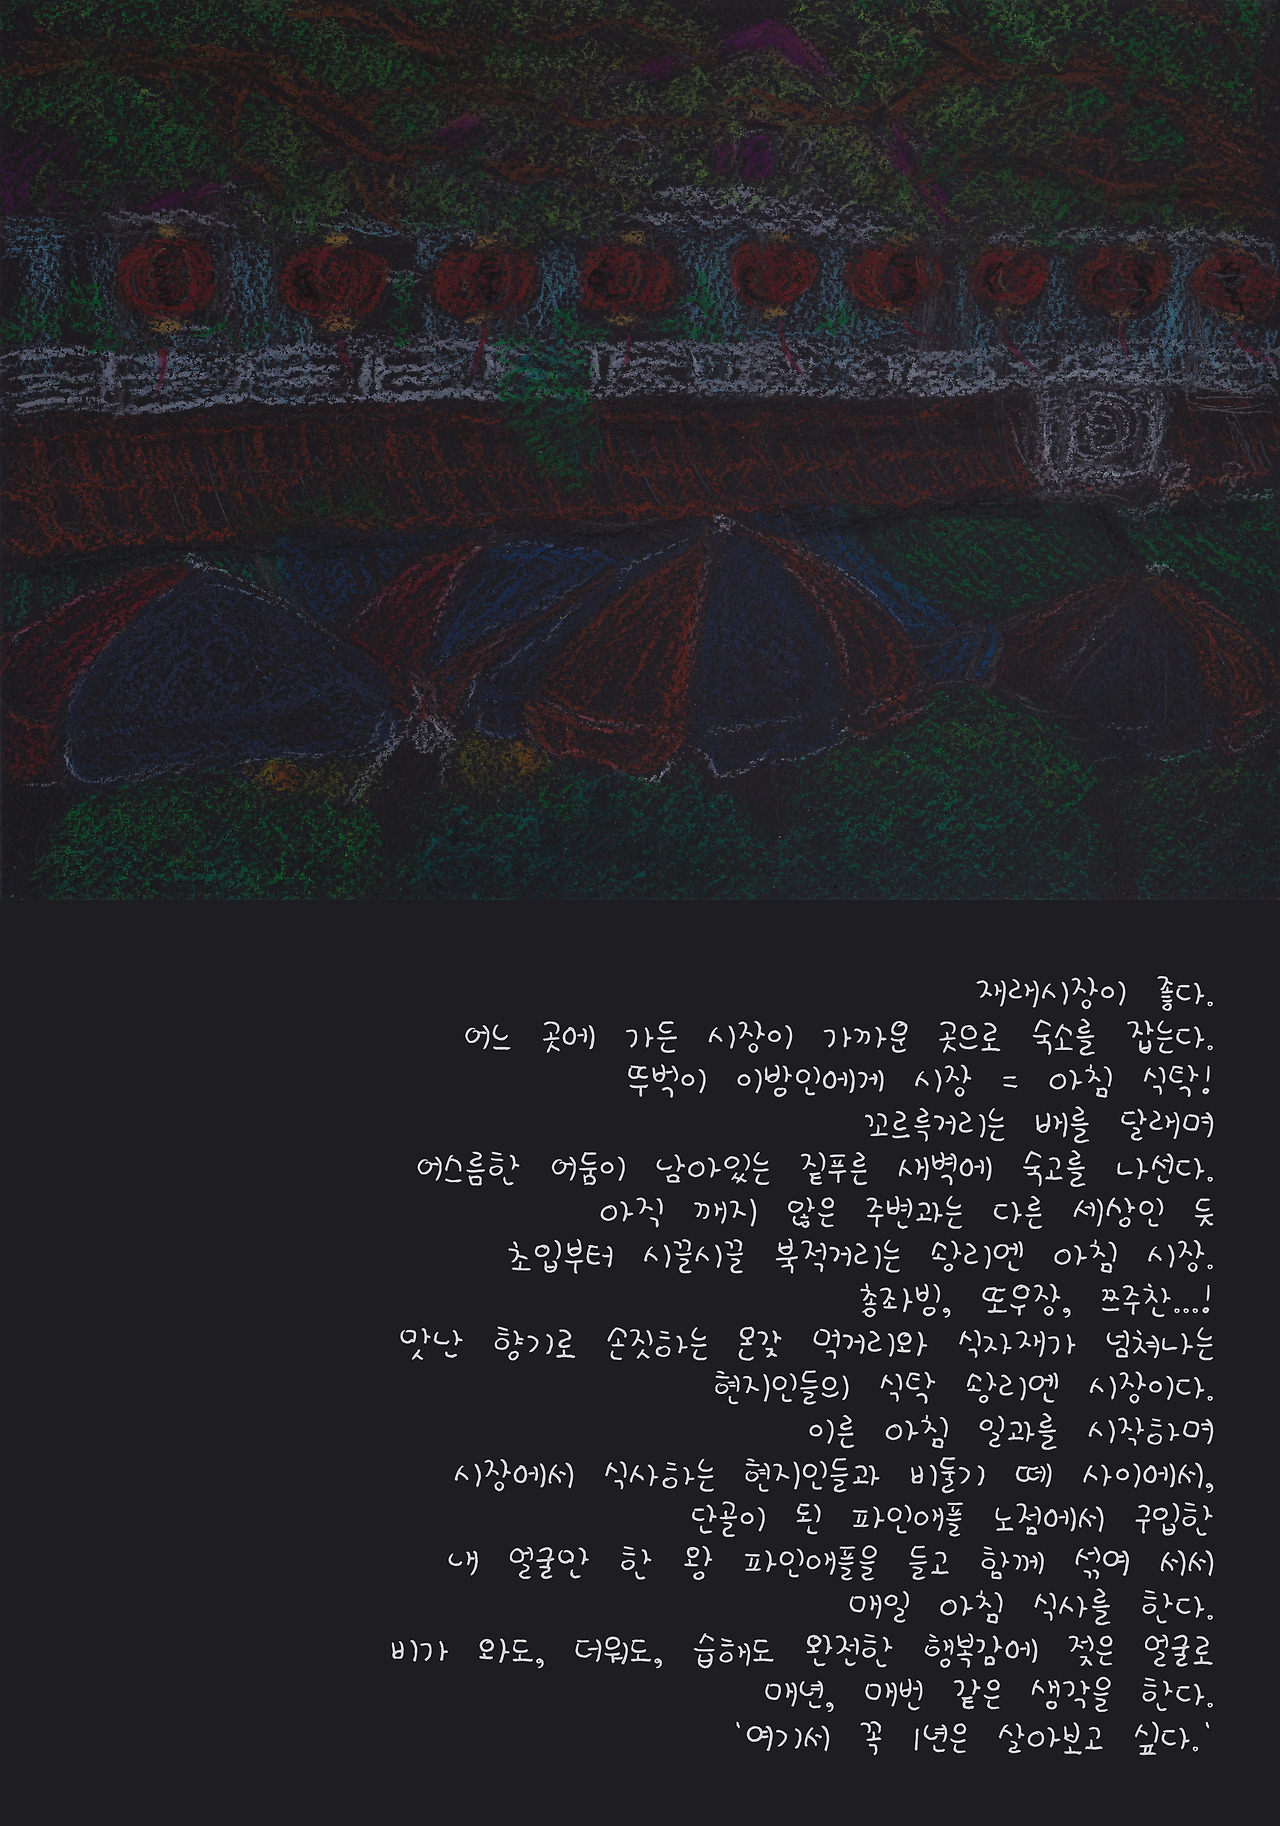 재래시장이 좋다.
어느 곳에 가든 시장이 가까운 곳으로 숙소를 잡는다.
뚜벅이 이방인에게 시장 = 아침 식탁!
꼬르륵거리는 배를 달래며
어스름한 어둠이 남아있는 짙푸른 새벽에 숙고를 나선다.
아직 깨지 않은 주변과는 다른 세상인 듯
초입부터 시끌시끌 북적거리는 솽리엔 아침 시장.
총좌빙, 또우장, 쯔주찬...!
맛난 향기로 손짓하는 온갖 먹거리와 식자재가 넘쳐나는
현지인들의 식탁 솽리엔 시장이다.
이른 아침 일과를 시작하며
시장에서 식사하는 현지인들과 비둘기 떼 사이에서,
단골이 된 파인애플 노점에서 구입한
내 얼굴만 한 왕 파인애플을 들고 함께 섞여 서서
매일 아침 식사를 한다.
비가 와도, 더워도, 습해도 완전한 행복감에 젖은 얼굴로
매년, 매번 같은 생각을 한다.
'여기서 꼭 1년은 살아보고 싶다.'